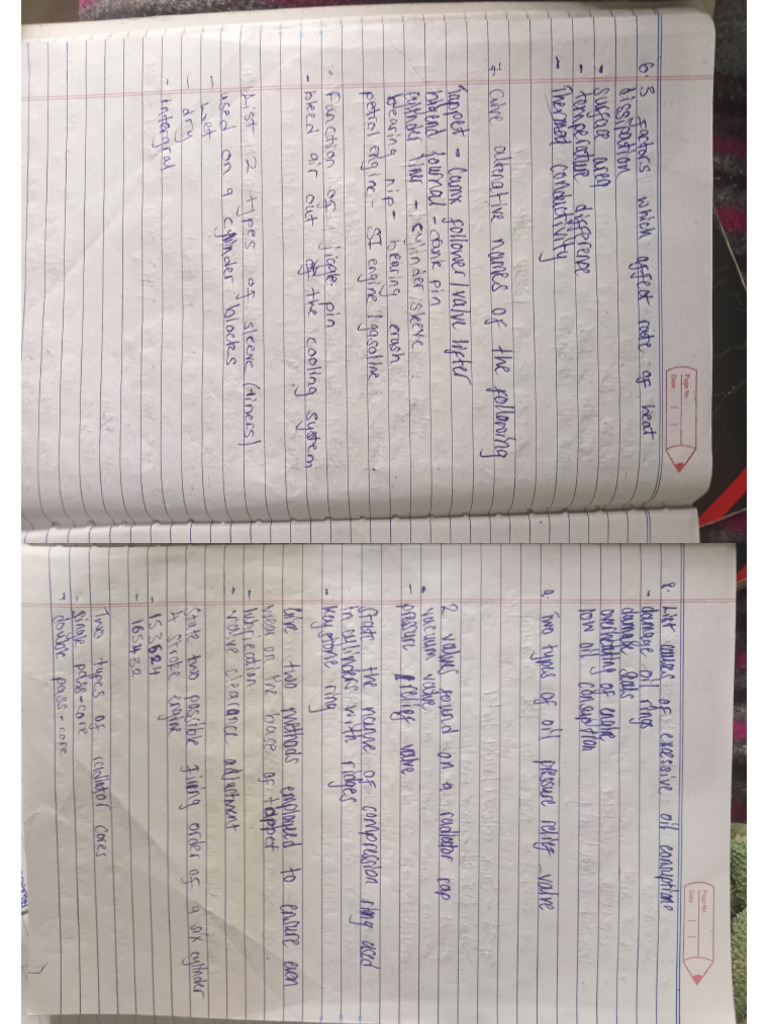 Page No.
Date:
6. 3 factors which affect rate of heat
dissipation
- surface area
- temperature difference
- Thermal conductivity
7. Give alterative names of the following
Tappet - Camx follower/valve lifter
bibend Journal - crank pin
cylinder liner - cylinder sleeve
bearing nip - bearing crash
petrol engine - SI engine/gasoline
- Function of jiggle pin
- bleed air out of the cooling system
List 2 types of sleeve (liners)
used on a cylinder blocks
- wet
- dry
- intergral
Page No.
Date:
8. List causes of excessive oil consuption
- damage oil rings
damage seals
overheating of engine
low oil consuption
9. Two types of oil pressure relief valve
2 valves found on a radiator cap
- vacuum valve
- pressure relief valve
State the name of compression ring used
in cylinders with ridges
- keystone ring
Give two methods employed to ensure even
wear on the base of tappet
- lubrication
- valve clearance adjustment
State two possible firing order of a six cylinder
4 stroke engine
- 153624
- 165432
Two types of radiator cores
- single pass-core
- double pass-core